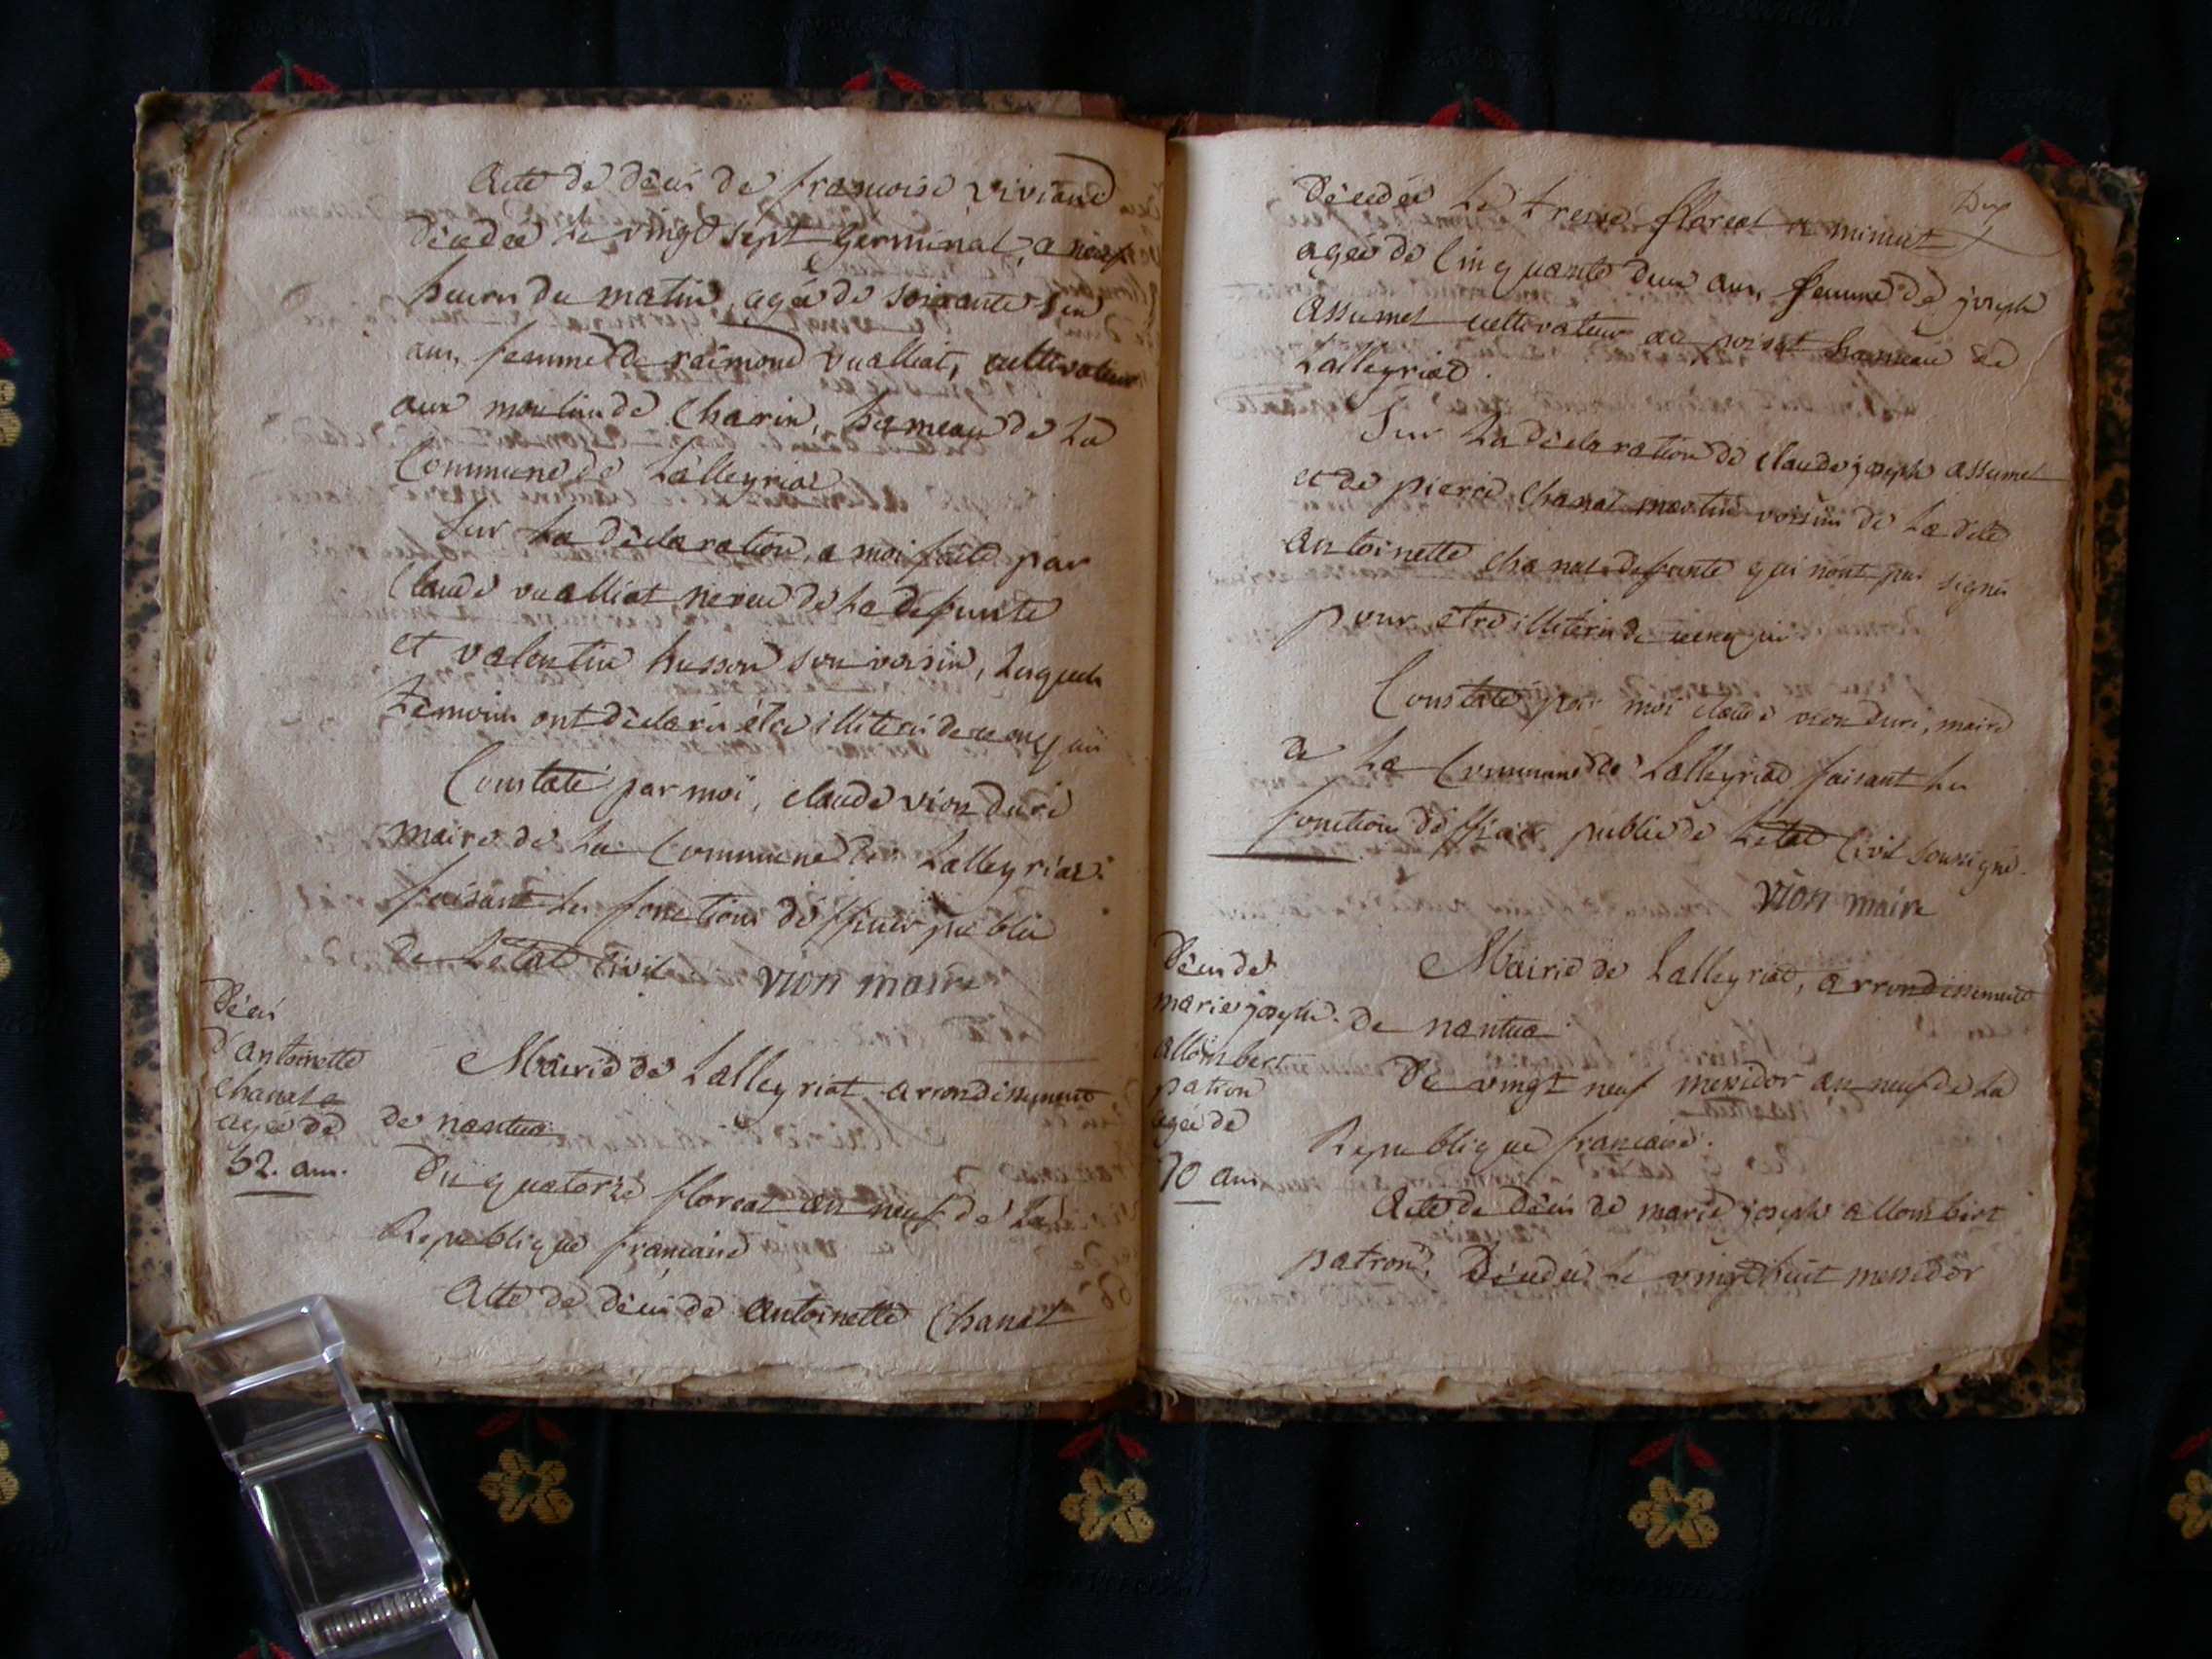 acte de décès de francoise viviand
décédée le vingt sept germinal, a neuf
heures du matin, agée de soixante six
ans, femme de raimond vualliat, cultivateur
aux moulin de Charix, hameau de la
Commune de Lalleyriat
Sur la déclaration, a moi faite par
Claude vualliat neveu de la defunte
et valentin husson son voisin, lesquels
témoins ont déclarés être illiterés de ce enquis
Constaté par moi, claude vion duré
maire de la Commune de Lalleyriat
faisant les fonctions dofficier public
de Létat Civil vion maire
Décès
d'antoinette
Chanal
agée de
52. ans.
Mairie de Lalleyriat arrondissement
de nantua
Du quatorze floreal an neuf de la
Republique francaise
Acte de décès de antoinette Chanal
décédée le treize floreal a minuit
agée de Cinquante deux ans, femme de joseph
assumet cultivateur au poizat hameau de
Lalleyriat.
Sur la déclaration de claude joseph assumet
et de pierre Chanal martin voisins de la dite
antoinette chanal defunte qui nont pas signés
pour etre illiterés de ce enquis
Constaté par moi claude vion duré, maire
de la Commune de Lalleyriat faisant les
fonctions dofficier public de Létat Civil soussigné.
vion maire
Décès de
marie joseph
allombert
patron
agée de
70 ans
Mairie de Lalleyriat, arrondissement
de nantua
Du vingt neuf messidor an neuf de la
Republique francaise.
Acte de décès de marie joseph allombert
patron, décédée le vingt huit messidor